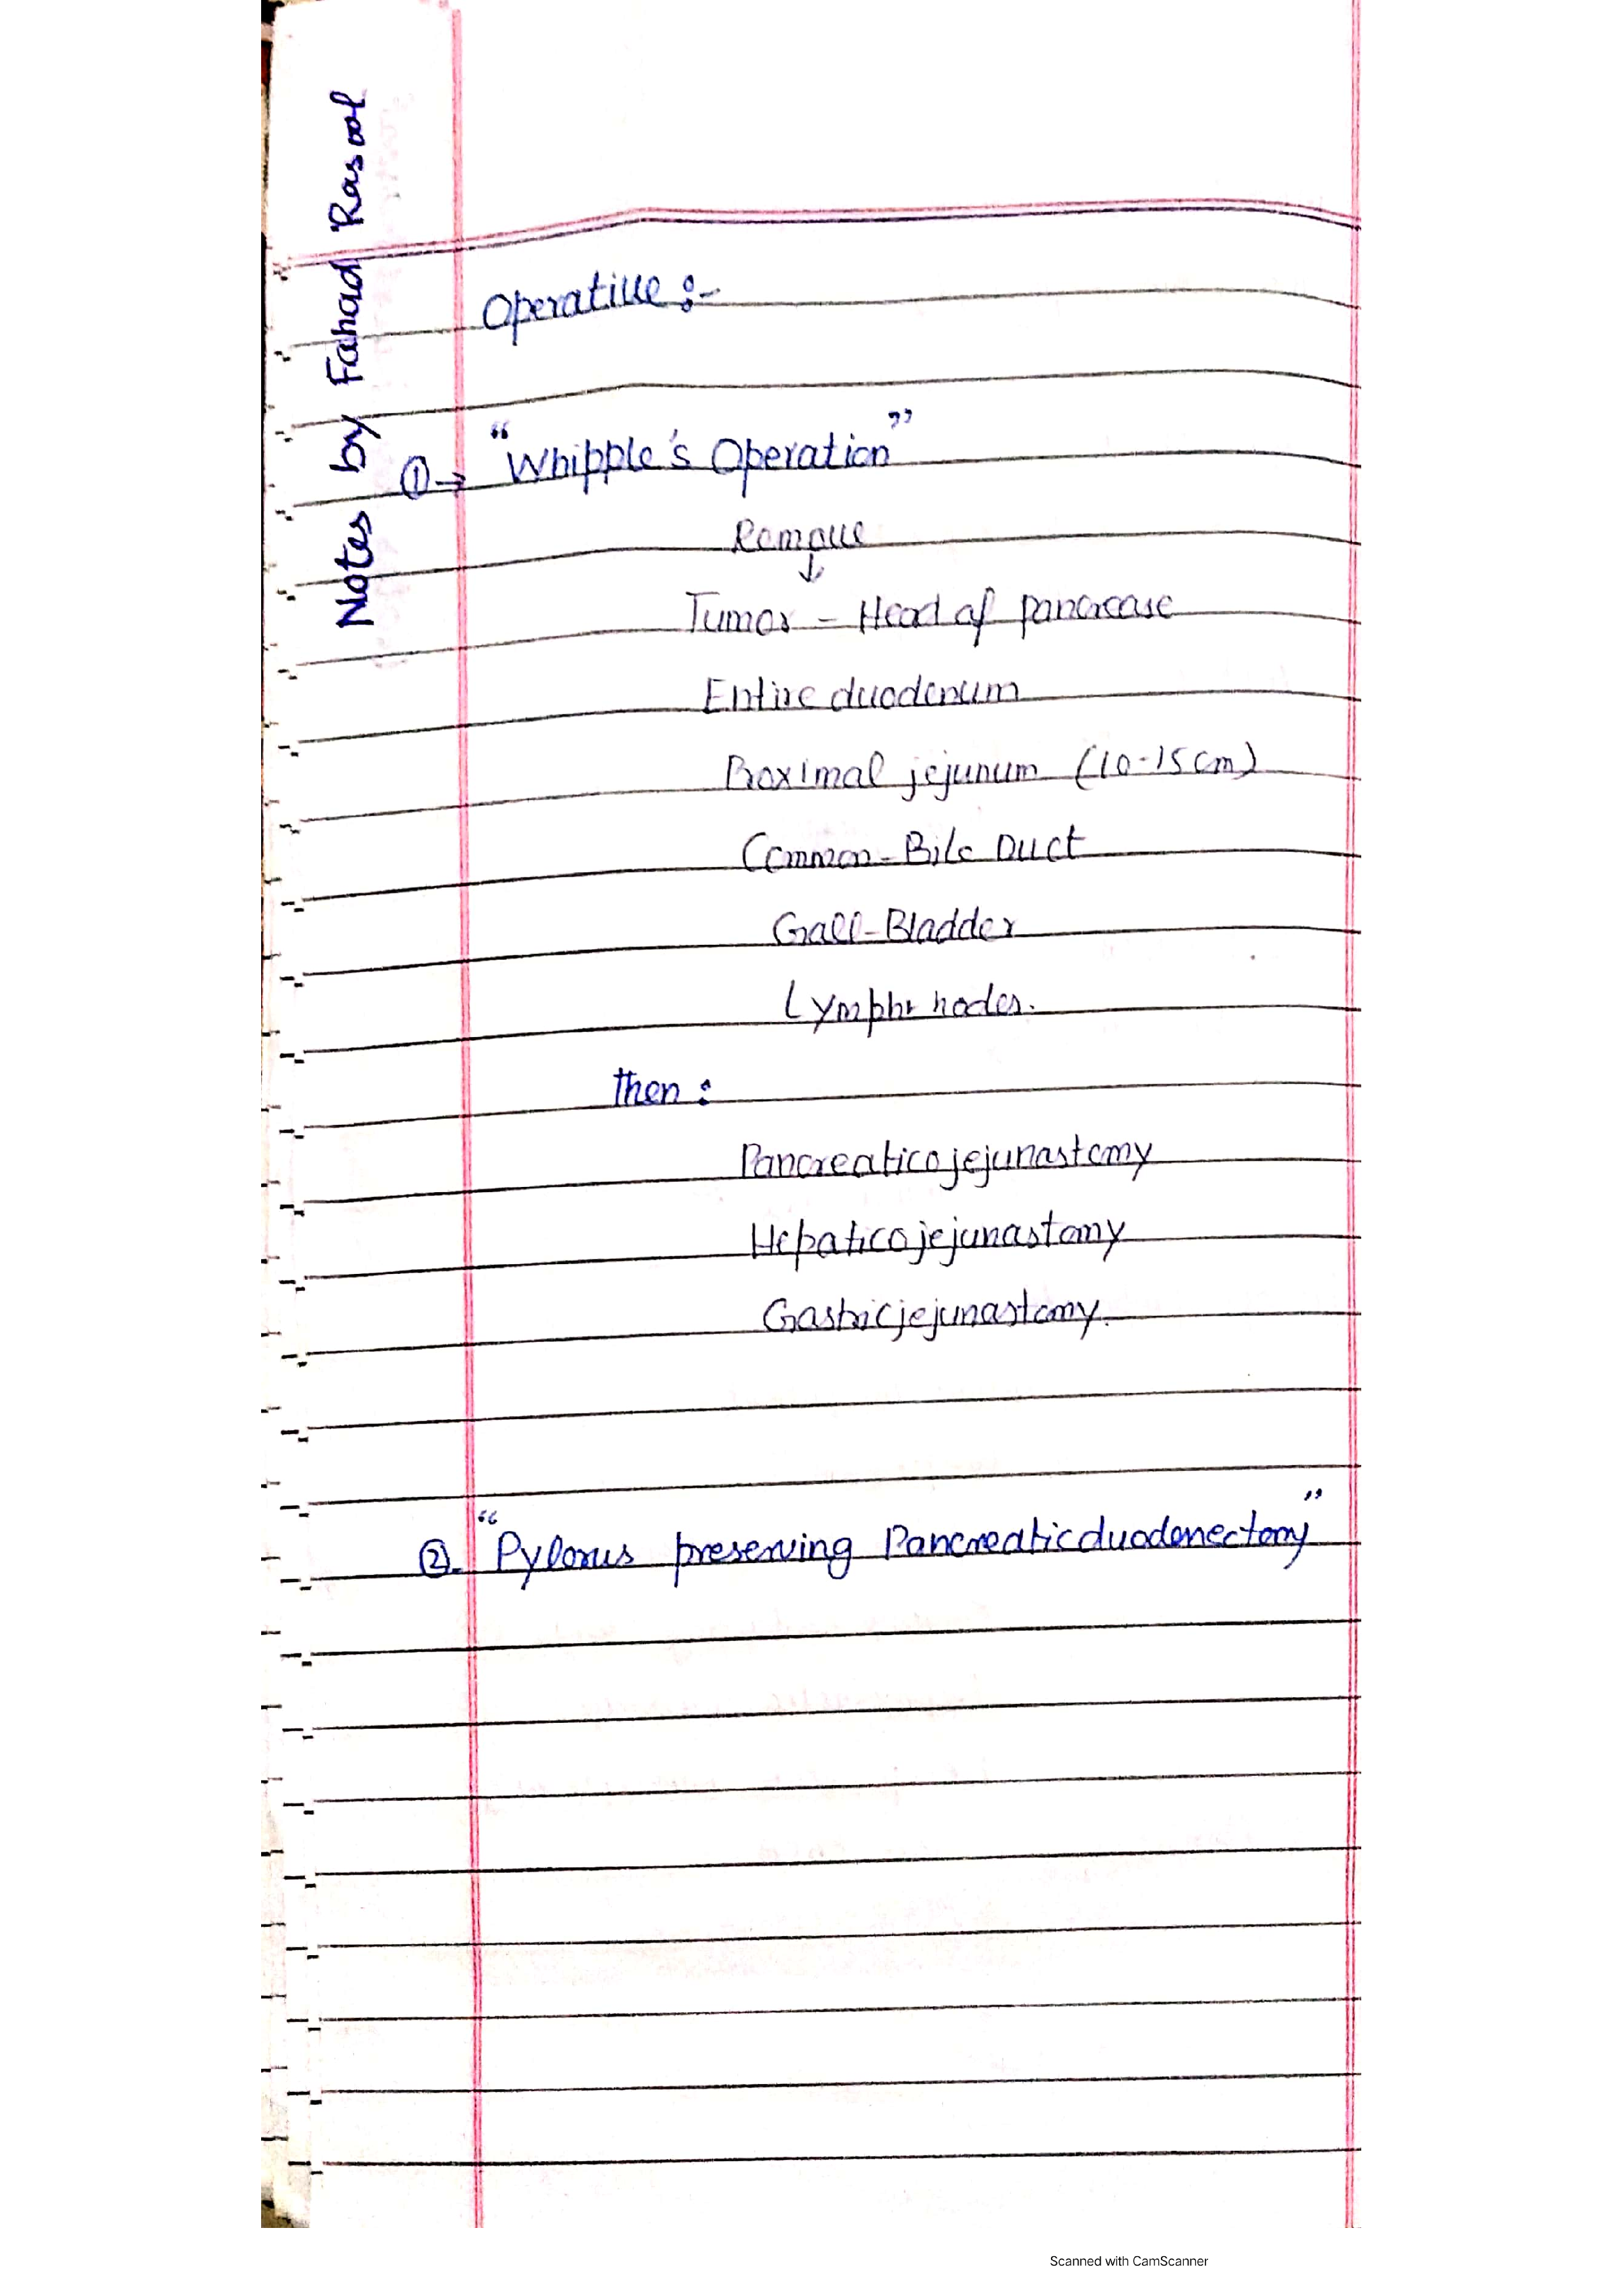 Notes by Fahad Rasool
Operative :-
①→ "Whipple's Operation"
Remove
↓
Tumor - Head of pancrease
Entire duodenum
Proximal jejunum (10-15 cm)
Common-Bile Duct
Gall-Bladder
Lymph nodes.
then :
Pancreaticojejunastomy
Hepaticojejunastomy
Gastricjejunastomy.
②. "Pylorus preserving Pancreaticduodenectomy"
Scanned with CamScanner